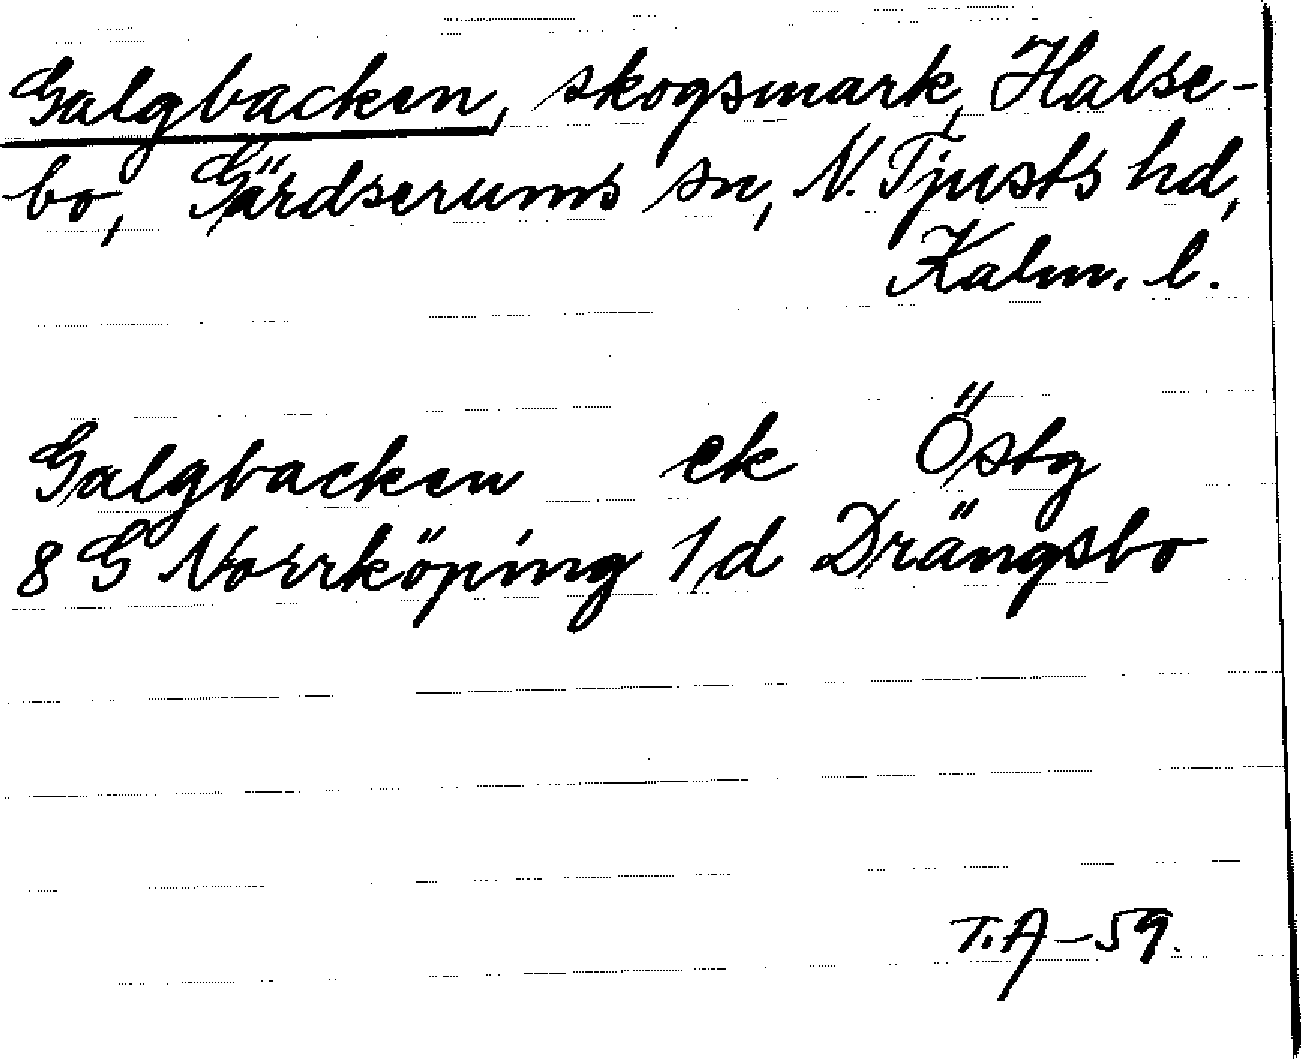 Galgbacken, skogsmark, Halse-
bo, Gärdserums sn, N. Tjusts hd,
Kalm. l.
Galgbacken ek Östg
8 G Norrköping 1 d Drängsbo
T.A-59.